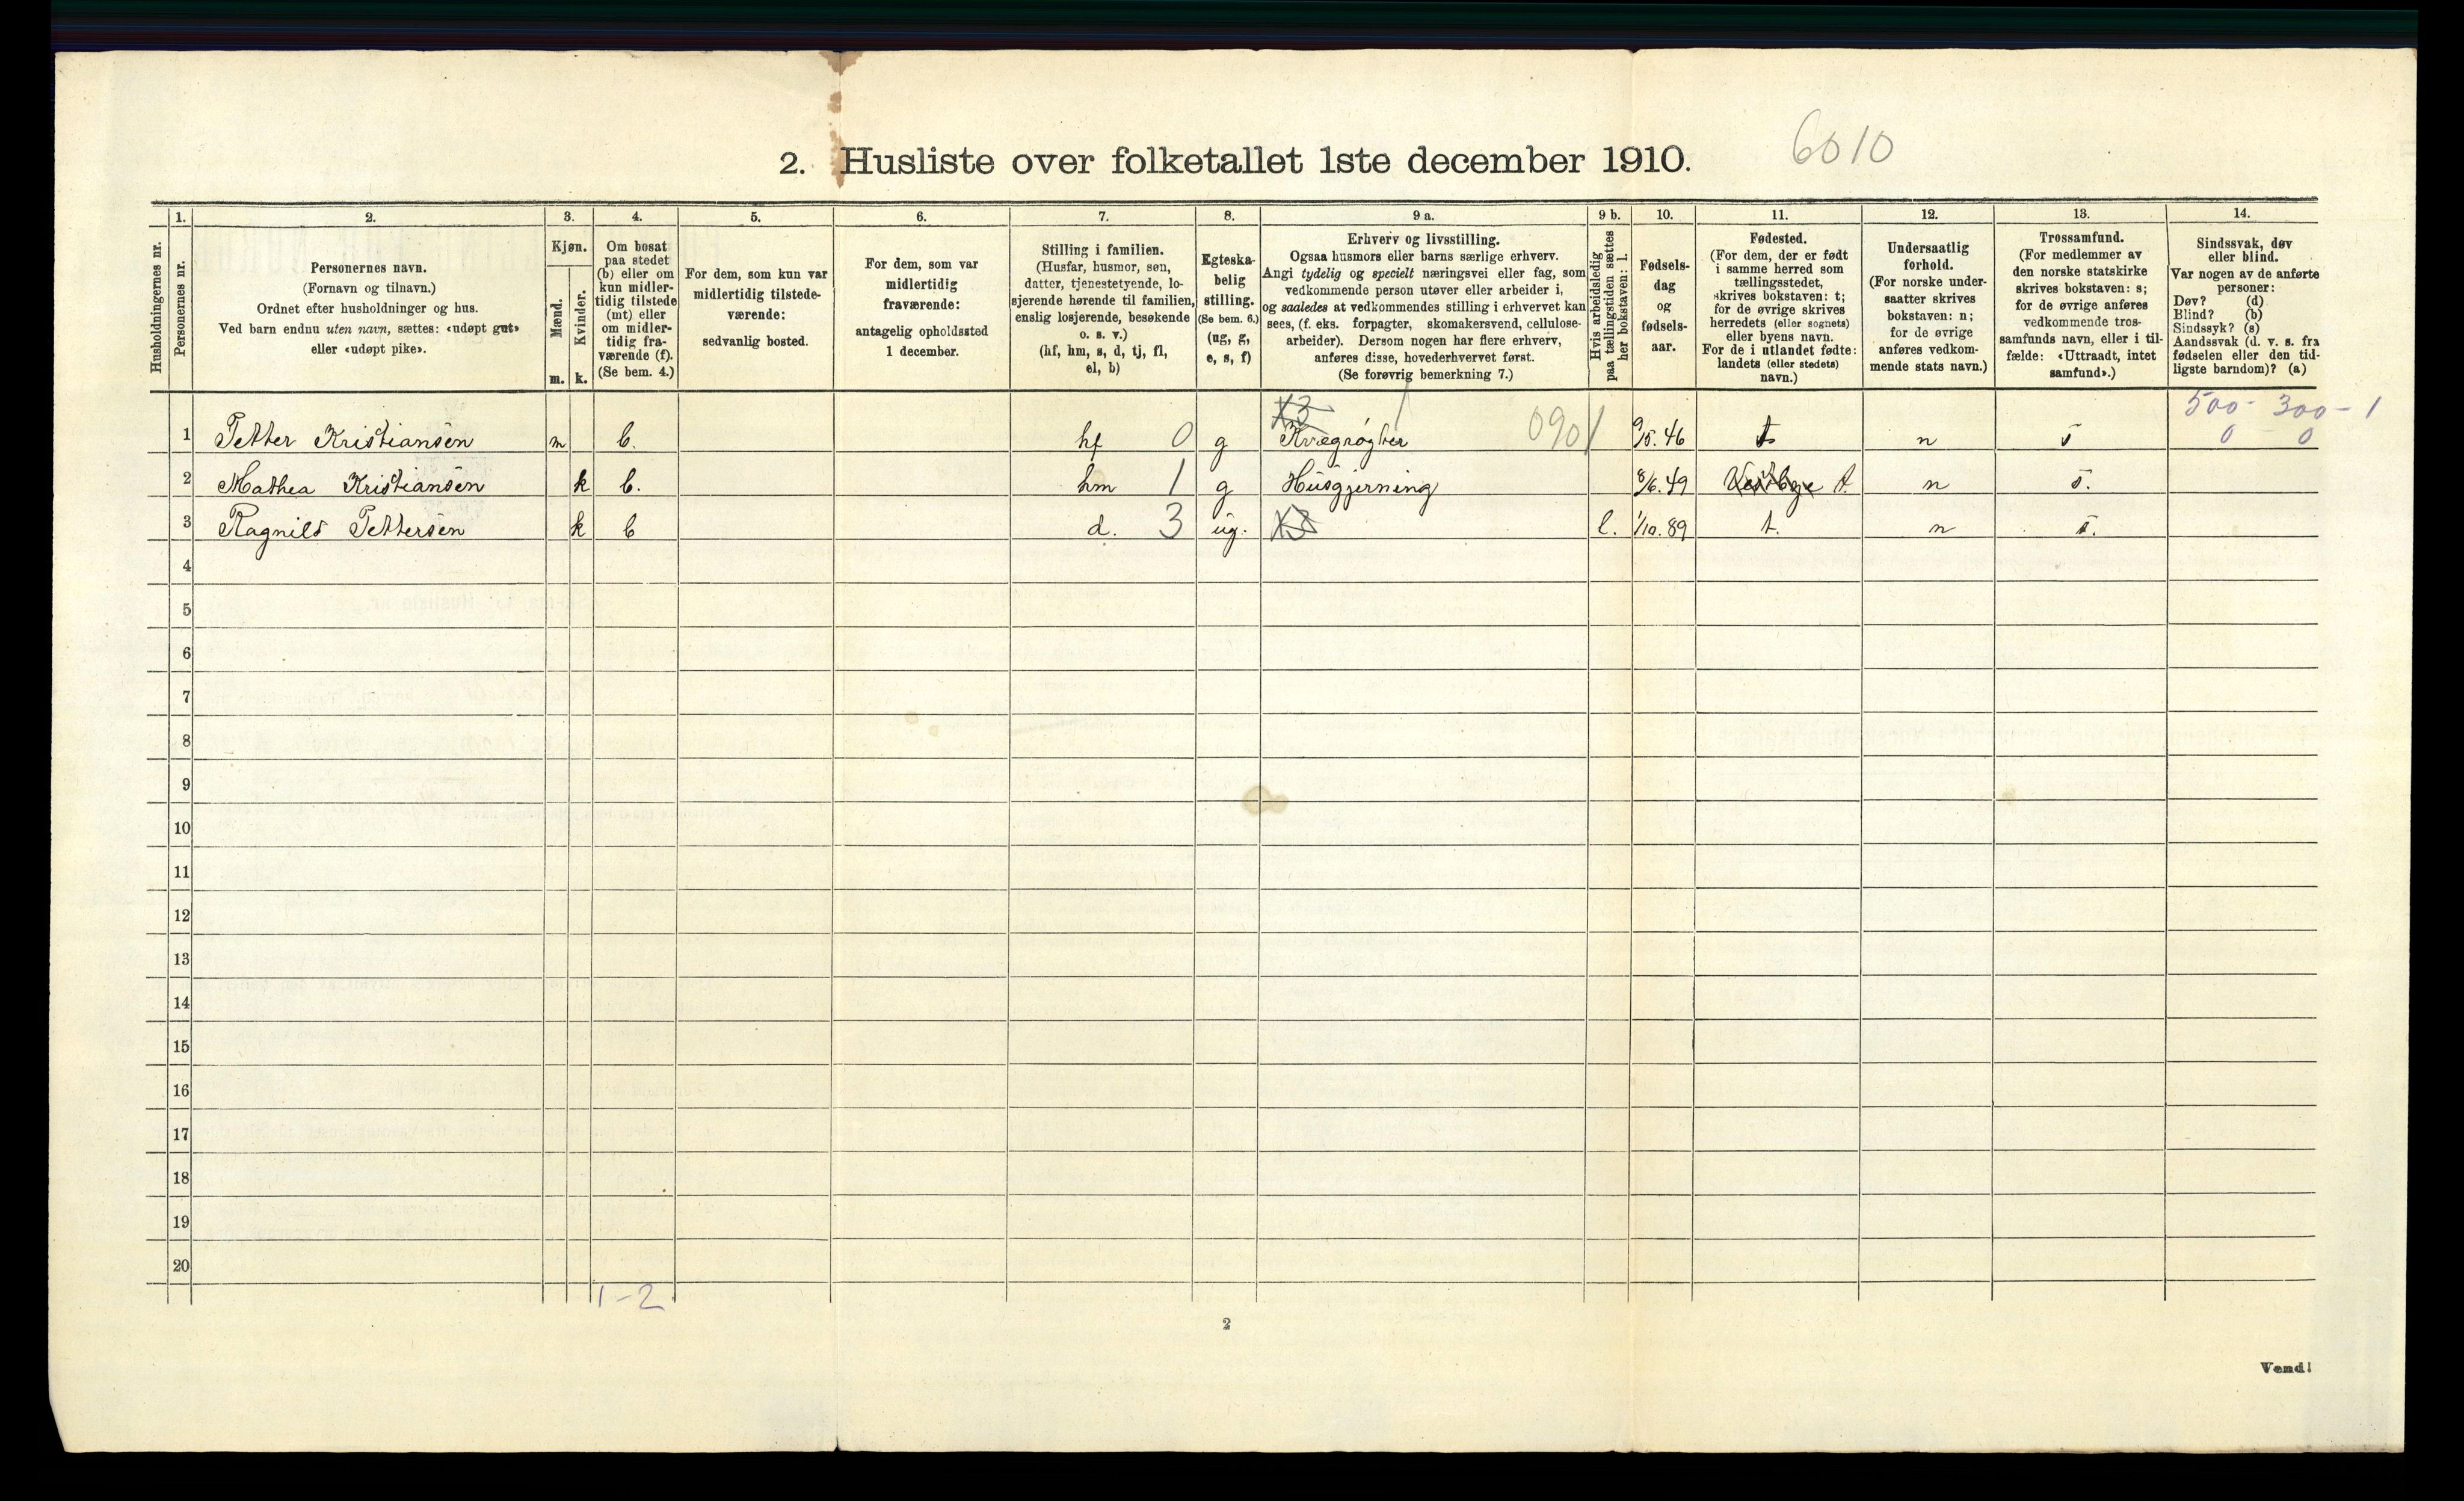 2. Husliste over folketallet 1ste december 1910.
6010
Husholdningernes nr.
1.
Personernes nr.
2.
Personernes navn.
(Fornavn og tilnavn.)
Ordnet efter husholdninger og hus.
Ved barn endnu uten navn, sættes: «udøpt gut»
eller «udøpt pike».
3.
Kjøn.
Mænd.
Kvinder.
m.
k.
4.
Om bosat
paa stedet
(b) eller om
kun midler-
tidig tilstede
(mt) eller
om midler-
tidig fra-
værende (f).
(Se bem. 4.)
5.
For dem, som kun var
midlertidig tilstede-
værende:
sedvanlig bosted.
6.
For dem, som var
midlertidig
fraværende:
antagelig opholdssted
1 december.
7.
Stilling i familien.
(Husfar, husmor, søn,
datter, tjenestetyende, lo-
sjerende hørende til familien,
enslig losjerende, besøkende
o. s. v.)
(hf, hm, s, d, tj, fl,
el, b)
8.
Egteska-
belig
stilling.
(Se bem. 6.)
(ug, g,
e, s, f)
9 a.
Erhverv og livsstilling.
Ogsaa husmors eller barns særlige erhverv.
Angi tydelig og specielt næringsvei eller fag, som
vedkommende person utøver eller arbeider i,
og saaledes at vedkommendes stilling i erhvervet kan
sees, (f. eks. forpagter, skomakersvend, cellulose-
arbeider). Dersom nogen har flere erhverv,
anføres disse, hovederhvervet først.
(Se forøvrig bemerkning 7.)
9 b.
Hvis arbeidsledig
paa tællingstiden sættes
her bokstaven: l.
10.
Fødsels-
dag
og
fødsels-
aar.
11.
Fødested.
(For dem, der er født
i samme herred som
tællingsstedet,
skrives bokstaven: t;
for de øvrige skrives
herredets (eller sognets)
eller byens navn.
For de i utlandet fødte:
landets (eller stedets)
navn.)
12.
Undersaatlig
forhold.
(For norske under-
saatter skrives
bokstaven: n;
for de øvrige
anføres vedkom-
mende stats navn.)
13.
Trossamfund.
(For medlemmer av
den norske statskirke
skrives bokstaven: s;
for de øvrige anføres
vedkommende tros-
samfunds navn, eller i til-
fælde: «Uttraadt, intet
samfund».)
14.
Sindssvak, døv
eller blind.
Var nogen av de anførte
personer:
Døv? (d)
Blind? (b)
Sindssyk? (s)
Aandssvak (d. v. s. fra
fødselen eller den tid-
ligste barndom)? (a)
X3 500 - 300 - 1
1 Petter Kristiansen m b. hf 0 g Kvægrøgter 0901 9/5. 46 t n s 0 0
2 Mathea Kristiansen k b. hm 1 g Husgjerning 8/6. 49 Vestbye t. n s.
3 Ragnild Pettersen k b d. 3 ug. X3 l. 1/10. 89 t. n s.
4
5
6
7
8
9
10
11
12
13
14
15
16
17
18
19
20
1-2
2
Vend!